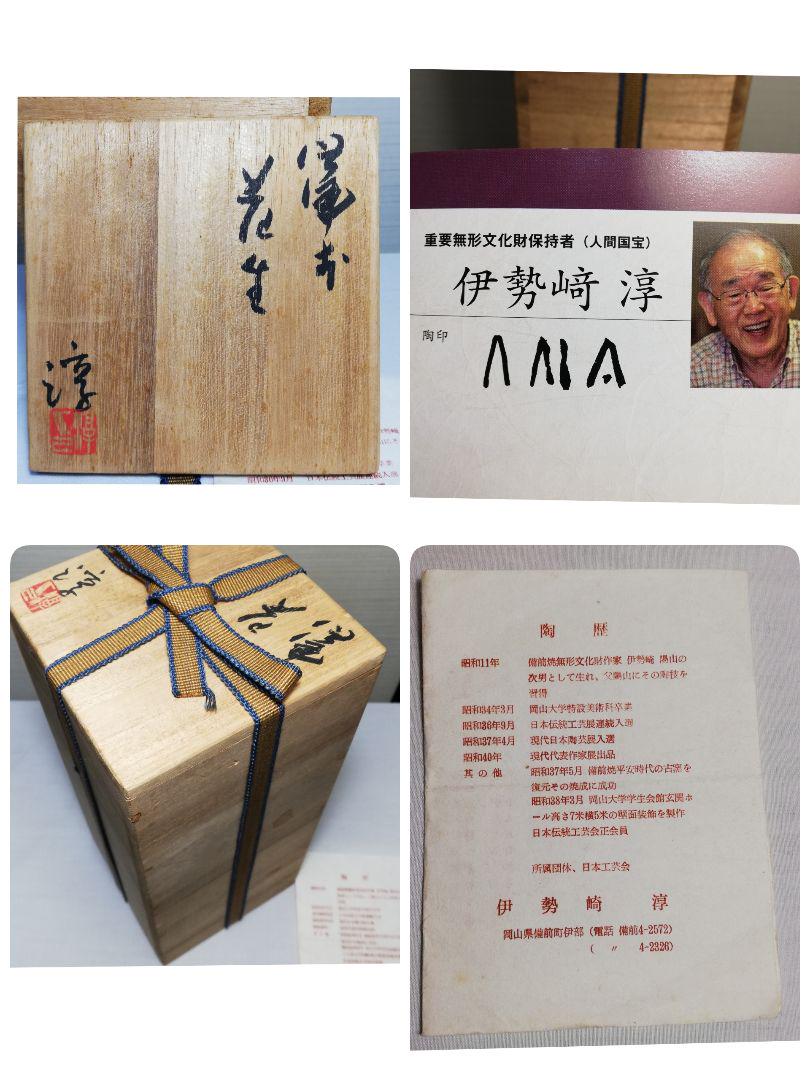 備前
花生
淳
昭和36年9月 日本伝統工芸展連続入選
重要無形文化財保持者（人間国宝）
伊勢﨑 淳
陶印
陶歴
昭和11年 備前焼無形文化財作家 伊勢崎 陽山の
次男として生れ、父陽山にその陶技を
習得
昭和34年3月 岡山大学特設美術科卒業
昭和36年9月 日本伝統工芸展連続入選
昭和37年4月 現代日本陶芸展入選
昭和40年 現代代表作家展出品
其の他 昭和37年5月 備前焼平安時代の古窯を
復元その焼成に成功
昭和38年3月 岡山大学学生会館玄関ホ
ール高さ7米横5米の壁面装飾を製作
日本伝統工芸会正会員
所属団体、日本工芸会
伊勢崎 淳
岡山県備前町伊部（電話 備前4-2572）
（ 〃 4-2326）